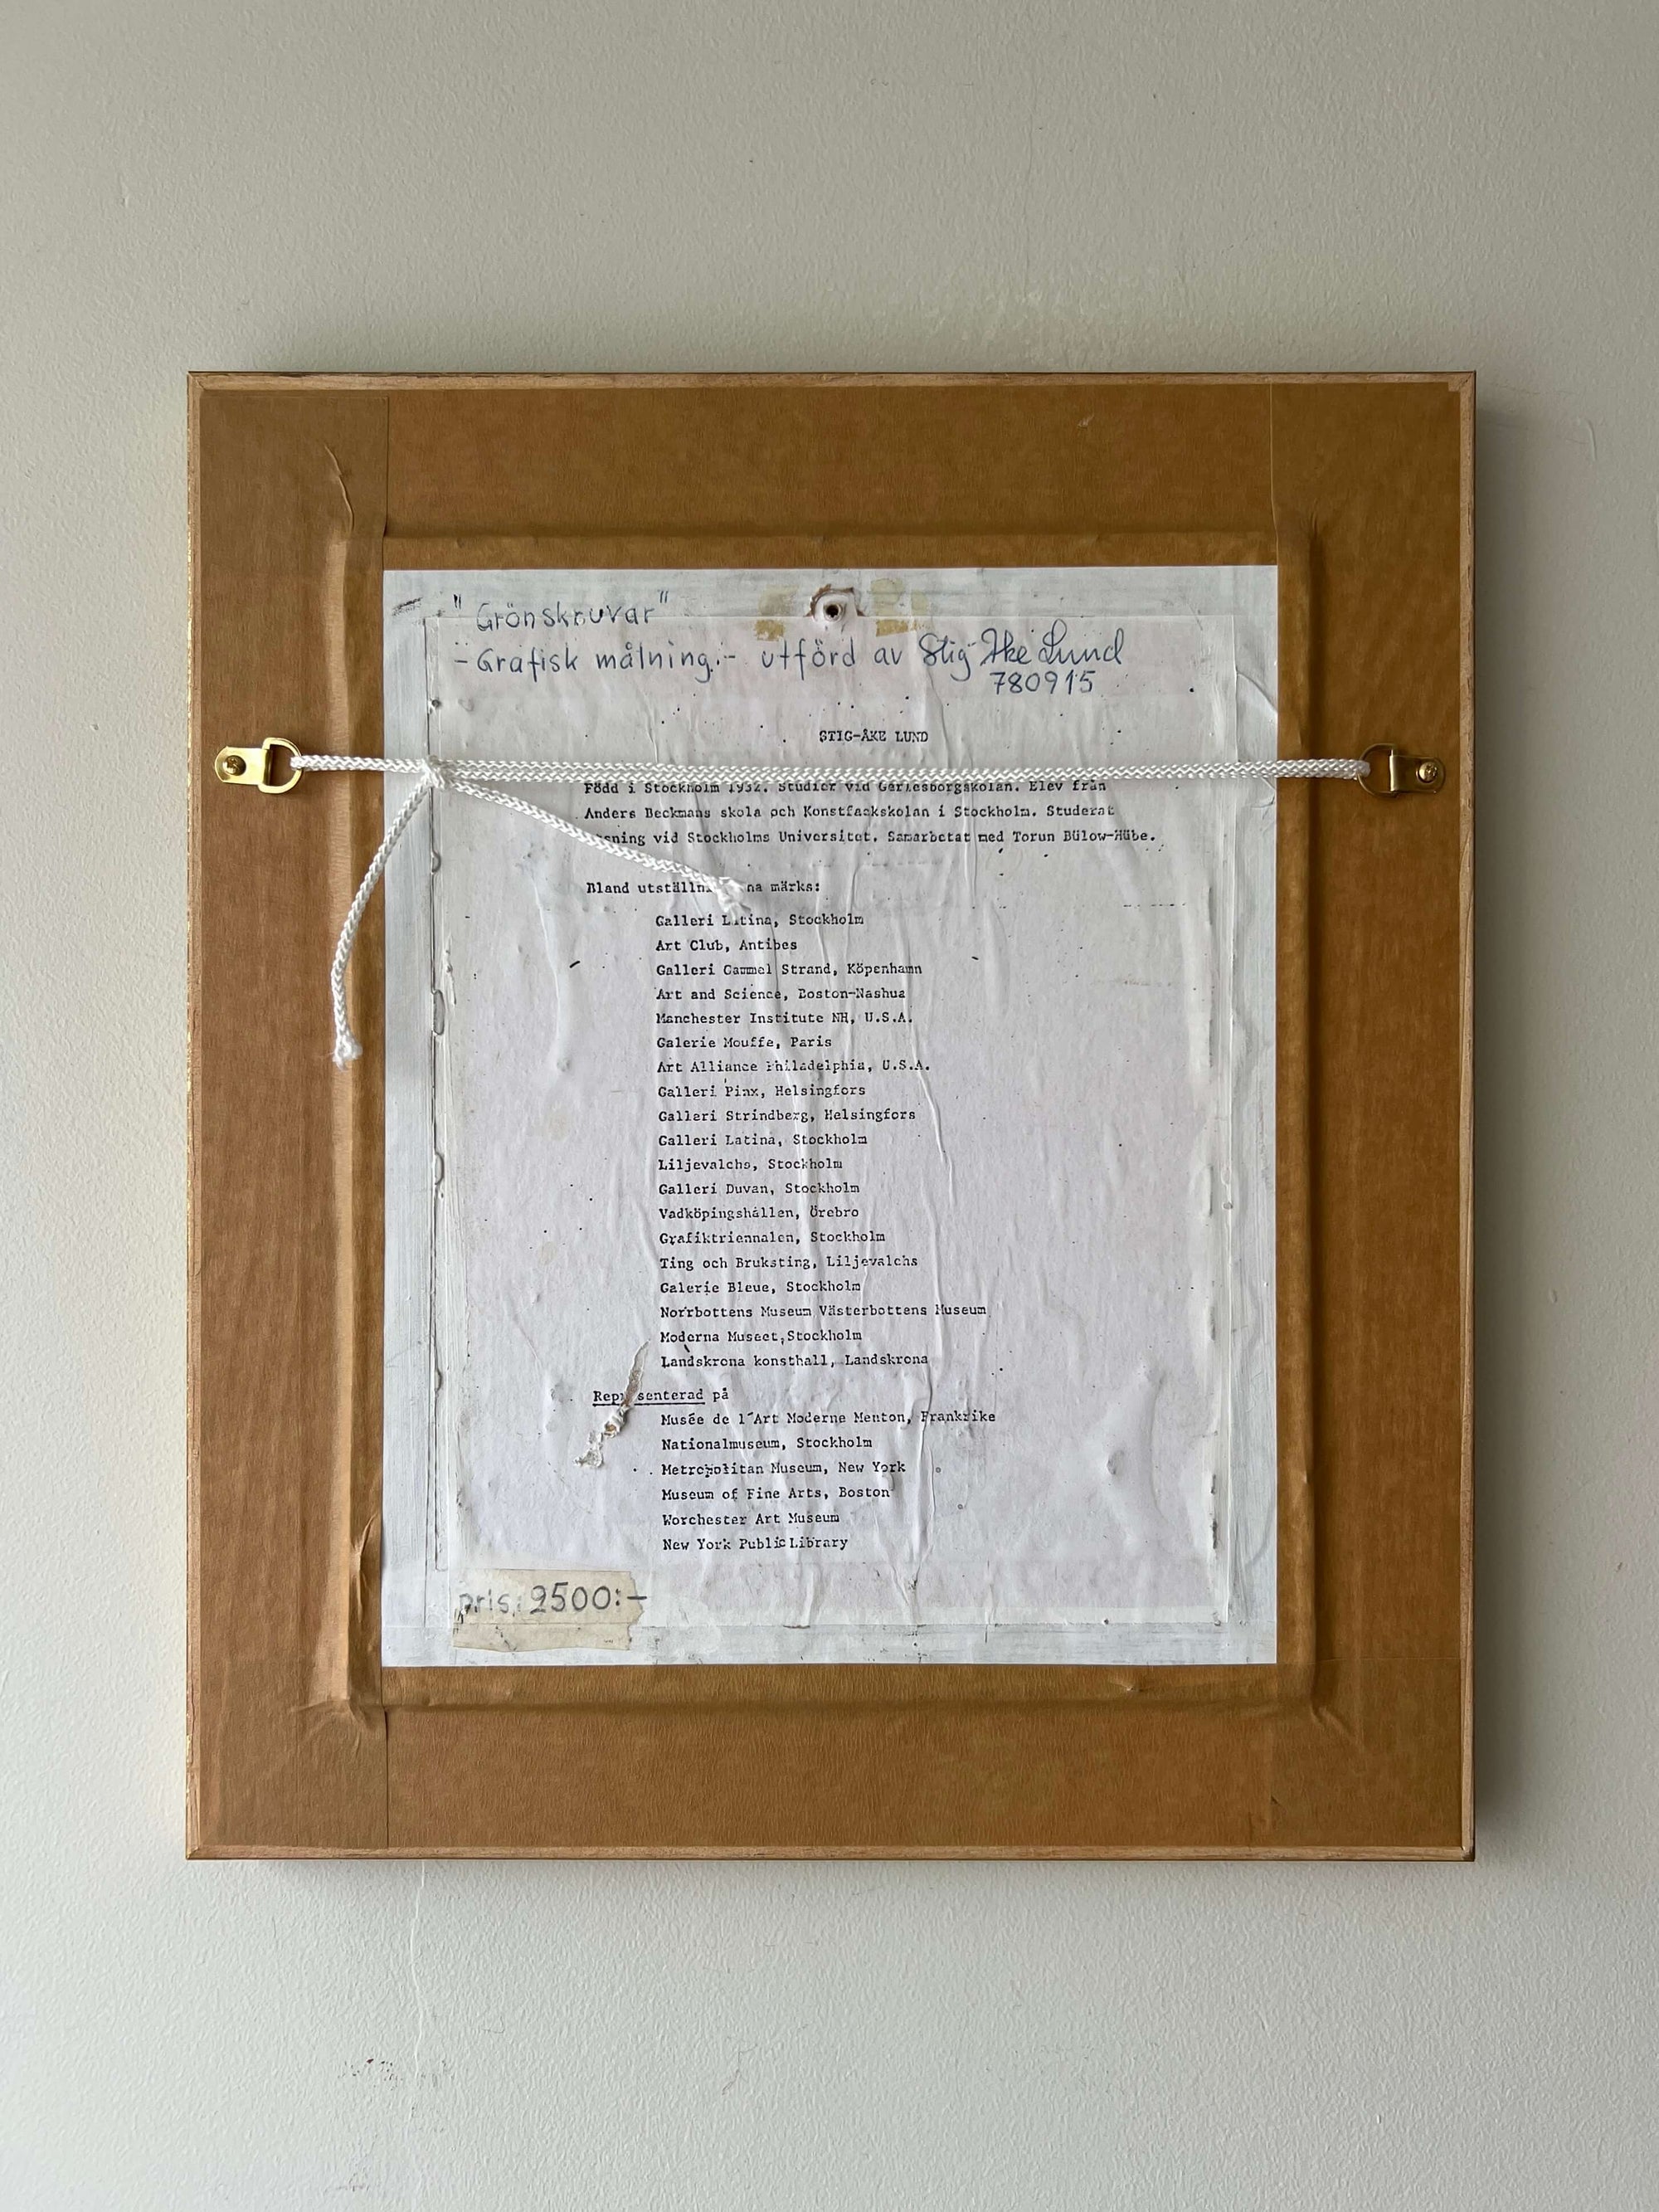 "Grönskruvar"
- Grafisk målning.- utförd av Stig Åke Lund
780915
STIG-ÅKE LUND
Född i Stockholm 1932. Studier vid Gerlesborgskolan. Elev från
Anders Beckmans skola och Konstfackskolan i Stockholm. Studerat
vid Stockholms Universitet. Samarbetat med Torun Bülow-Hübe.
Bland märks:
Galleri Latina, Stockholm
Art Club, Antibes
Galleri Gammel Strand, Köpenhamn
Art and Science, Boston-Nashua
Manchester Institute NH, U.S.A.
Galerie Mouffe, Paris
Art Alliance Philadelphia, U.S.A.
Galleri Pinx, Helsingfors
Galleri Strindberg, Helsingfors
Galleri Latina, Stockholm
Liljevalchs, Stockholm
Galleri Duvan, Stockholm
Vadköpingshallen, Örebro
Grafiktriennalen, Stockholm
Ting och Bruksting, Liljevalchs
Galerie Bleue, Stockholm
Norrbottens Museum Västerbottens Museum
Moderna Museet, Stockholm
Landskrona konsthall, Landskrona
Representerad på
Musée de l'Art Moderne Menton, Frankrike
Nationalmuseum, Stockholm
Metropolitan Museum, New York
Museum of Fine Arts, Boston
Worchester Art Museum
New York Public Library
pris: 2500:-